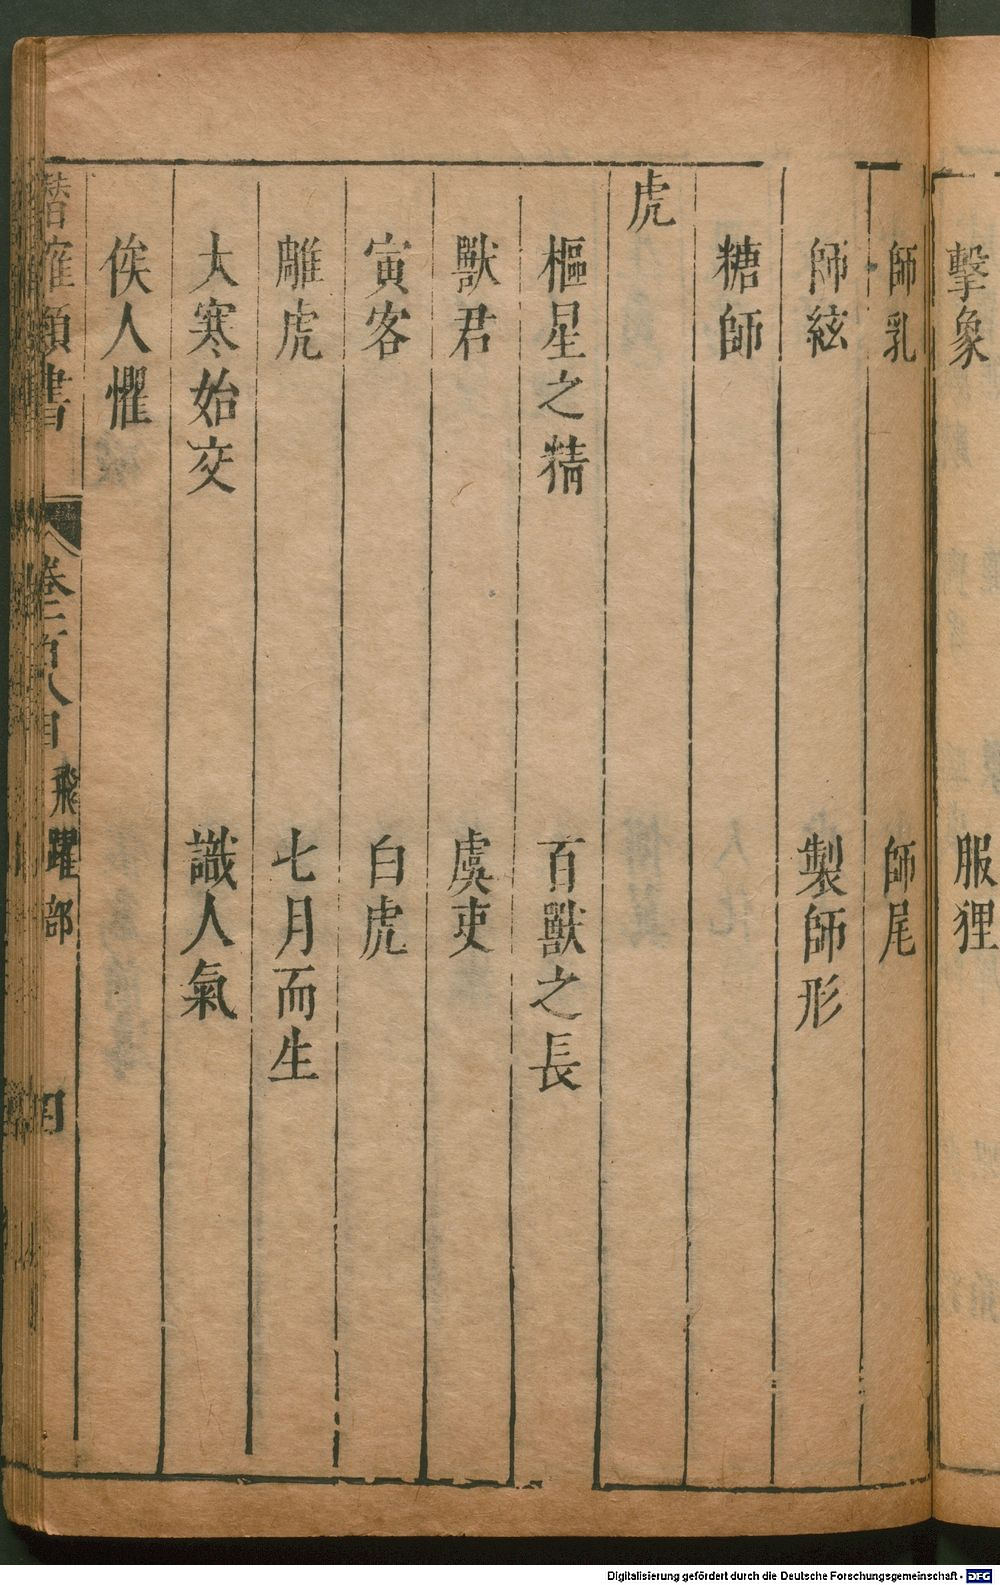 擊象　服狸
師乳　師尾
師絃　製師形
糖師
虎
樞星之精　百獸之長
獸君　虞吏
寅客　白虎
雕虎　七月而生
大寒始交　識人氣
俟人懼
潛確類書　卷二百八目　飛躍部　四
Digitalisierung gefördert durch die Deutsche Forschungsgemeinschaft - DFG